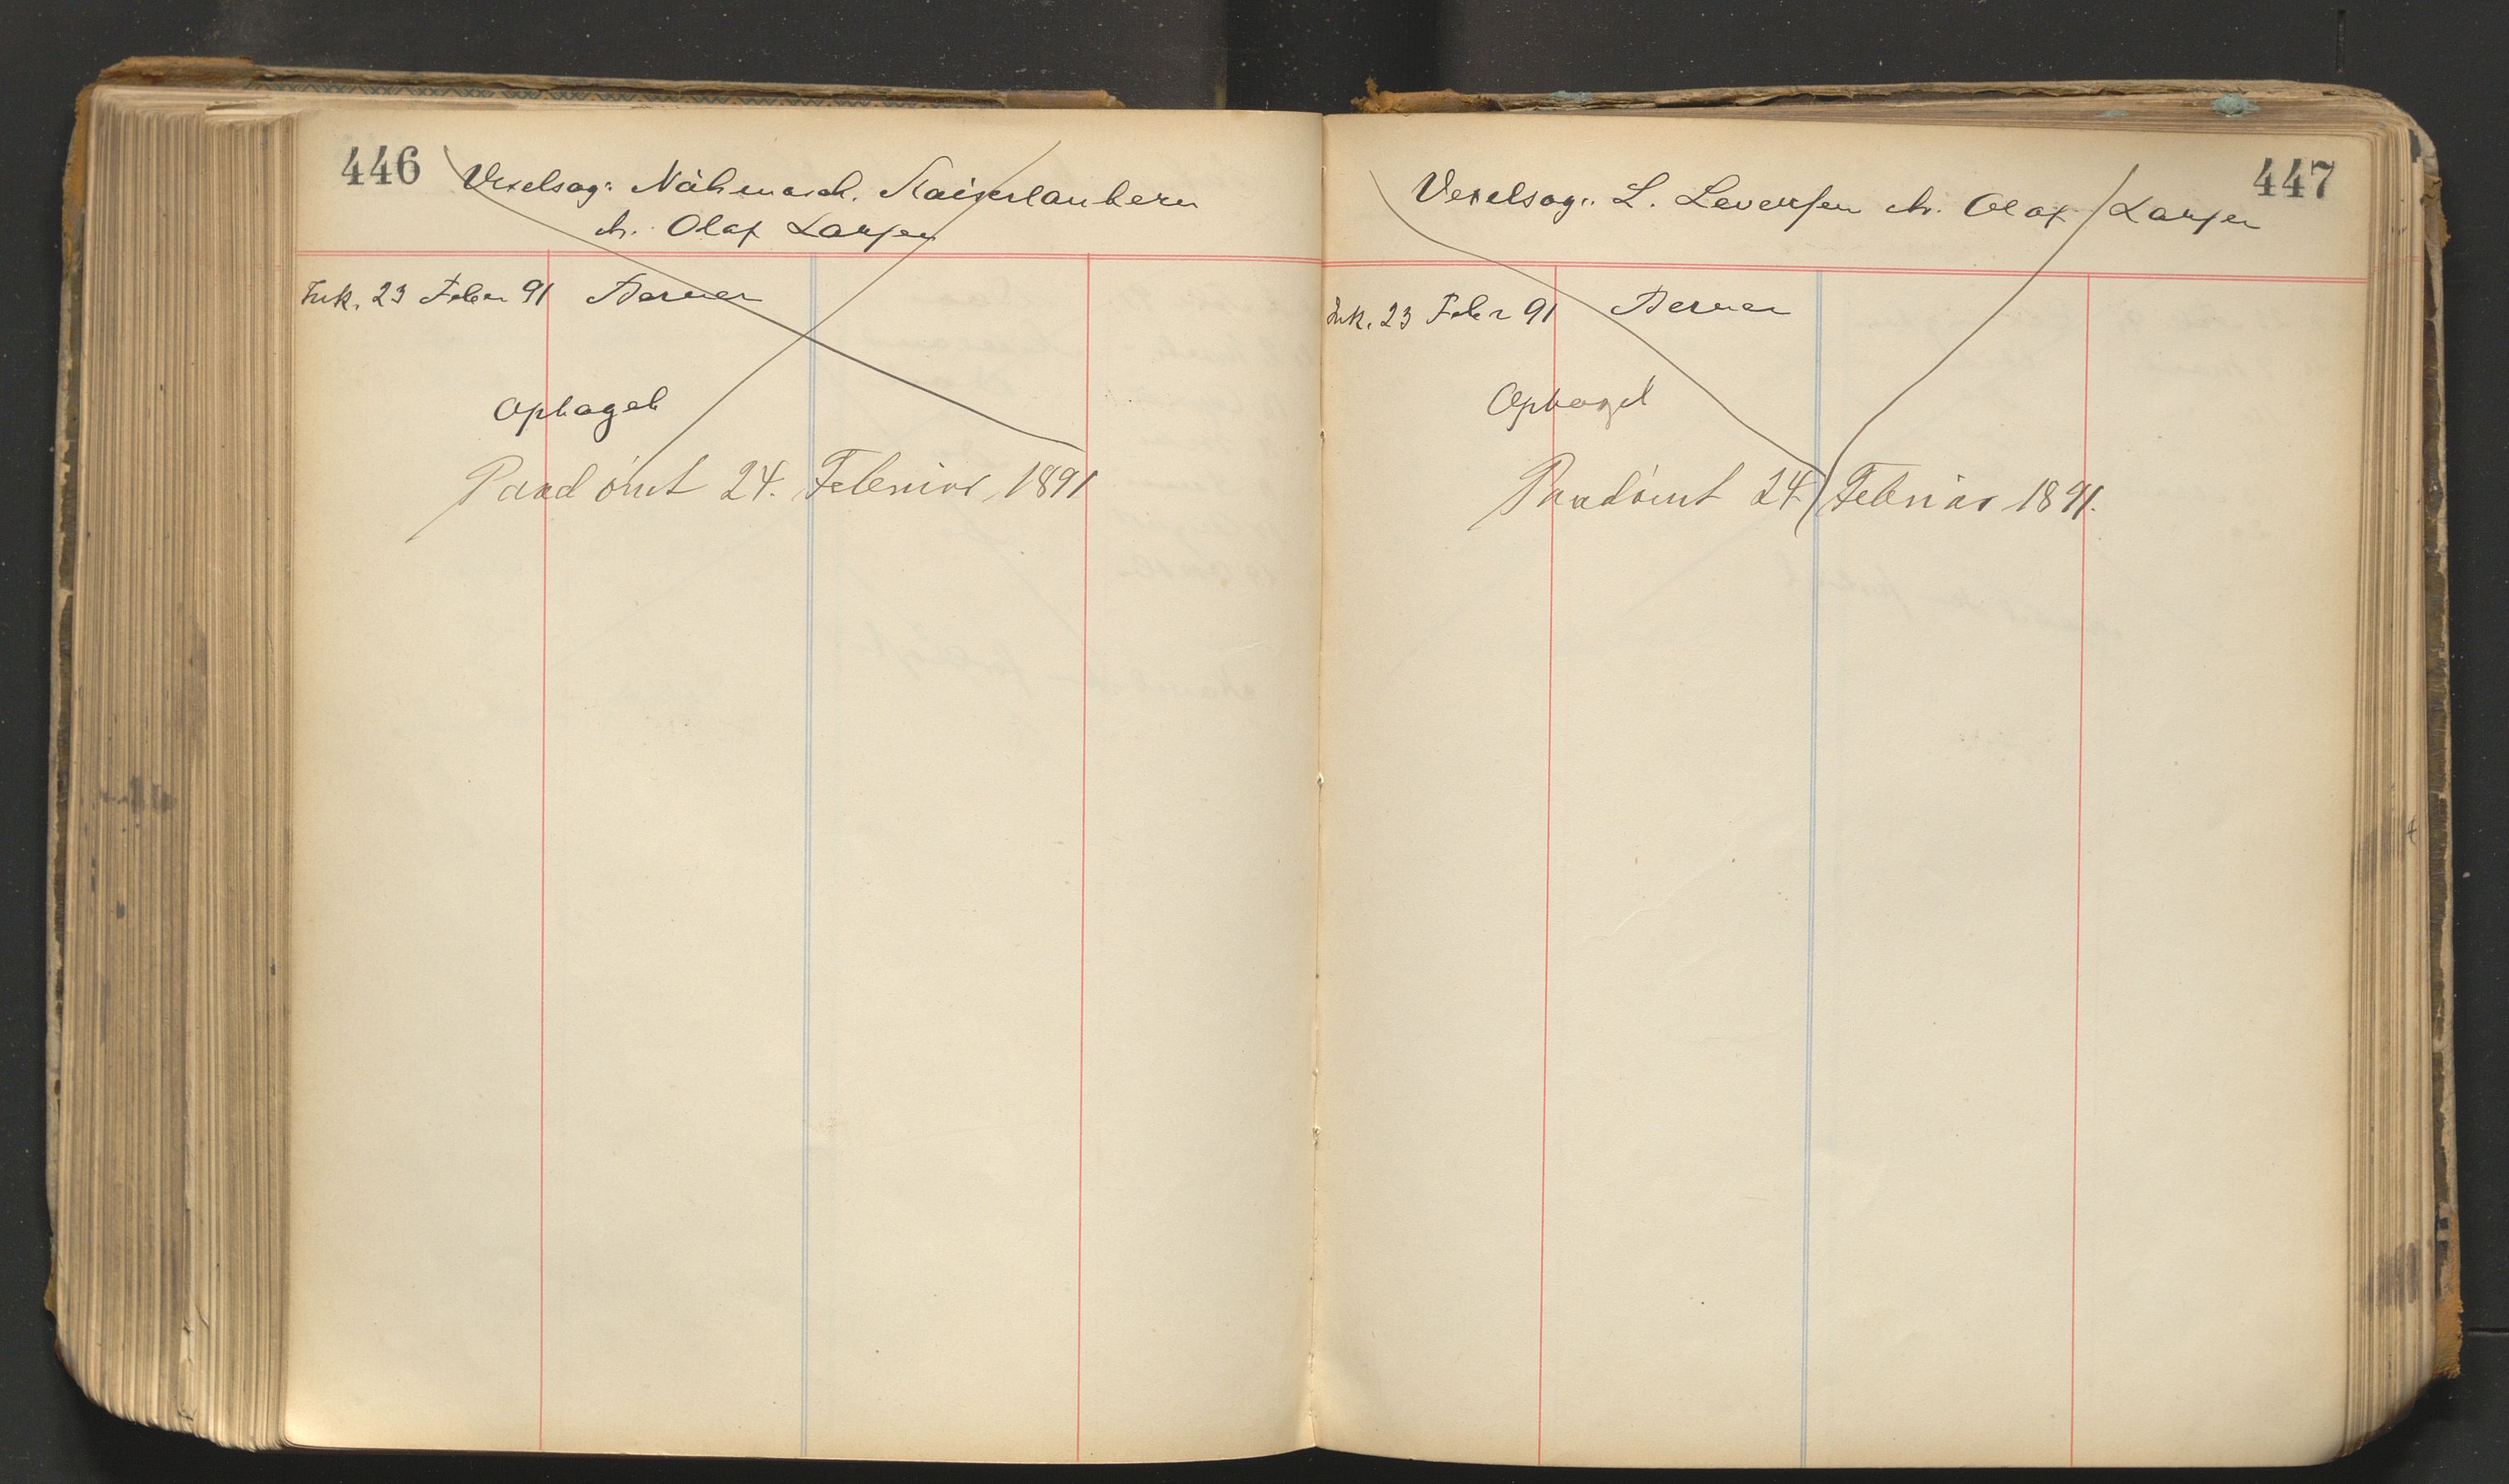 446
Vexelsag: Nähmasch. Kaiserlautern
ctr. Olaf Larsen
Ink. 23 Febr 91 Berner
Optaget
Paadömt 24. Februar 1891
447
Vexelsag: L. Levensen ctr. Olaf Larsen
Ink. 23 Febr 91 Berner
Optaget
Paadömt 24. Februar 1891.